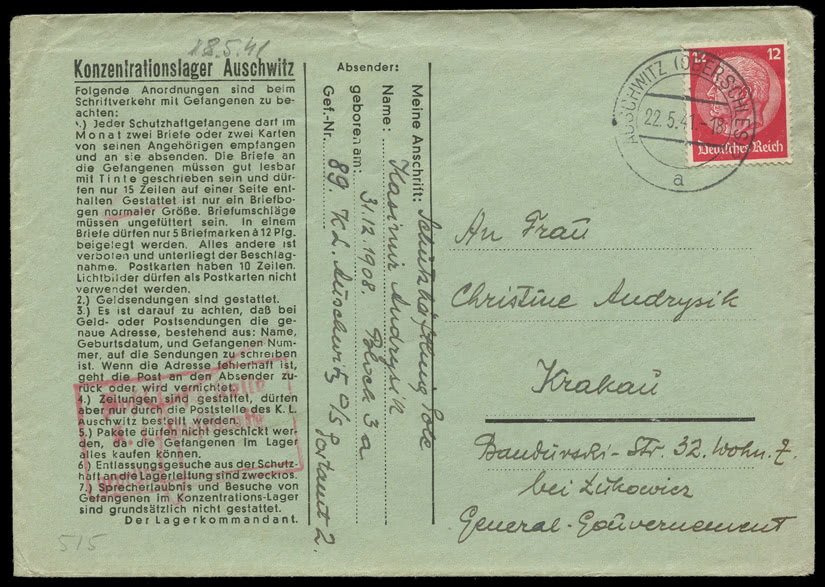 18.5.41
Konzentrationslager Auschwitz
Folgende Anordnungen sind beim
Schriftverkehr mit Gefangenen zu be-
achten:
1.) Jeder Schutzhaftgefangene darf im
Monat zwei Briefe oder zwei Karten
von seinen Angehörigen empfangen
und an sie absenden. Die Briefe an
die Gefangenen müssen gut lesbar
mit Tinte geschrieben sein und dür-
fen nur 15 Zeilen auf einer Seite ent-
halten Gestattet ist nur ein Briefbo-
gen normaler Größe. Briefumschläge
müssen ungefüttert sein. In einem
Briefe dürfen nur 5 Briefmarken à 12 Pfg.
beigelegt werden. Alles andere ist
verboten und unterliegt der Beschlag-
nahme. Postkarten haben 10 Zeilen.
Lichtbilder dürfen als Postkarten nicht
verwendet werden.
2.) Geldsendungen sind gestattet.
3.) Es ist darauf zu achten, daß bei
Geld- oder Postsendungen die ge-
naue Adresse, bestehend aus: Name,
Geburtsdatum, und Gefangenen Num-
mer, auf die Sendungen zu schreiben
ist. Wenn die Adresse fehlerhaft ist,
geht die Post an den Absender zu-
rück oder wird vernichtet.
4.) Zeitungen sind gestattet, dürfen
aber nur durch die Poststelle des K. L.
Auschwitz bestellt werden.
5.) Pakete dürfen nicht geschickt wer-
den, da die Gefangenen im Lager
alles kaufen können.
6.) Entlassungsgesuche aus der Schutz-
haft an die Lagerleitung sind zwecklos.
7.) Sprecherlaubnis und Besuche von
Gefangenen im Konzentrations-Lager
sind grundsätzlich nicht gestattet.
Der Lagerkommandant.
515
Absender:
Meine Anschrift: Schutzhäftling Pole
Name: Kasimir Andrysik
geboren am: 31.12.1908. Block 3a
Gef.-Nr. 89. K.L. Auschwitz O/S Postamt 2.
AUSCHWITZ (OBERSCHLES)
22.5.41.-18
a
12
12
Deutsches Reich
An Frau
Christine Andrysik
Krakau
Bandurski-Str. 32. Wohn. 7.
bei Żukowicz
General-Gouvernement